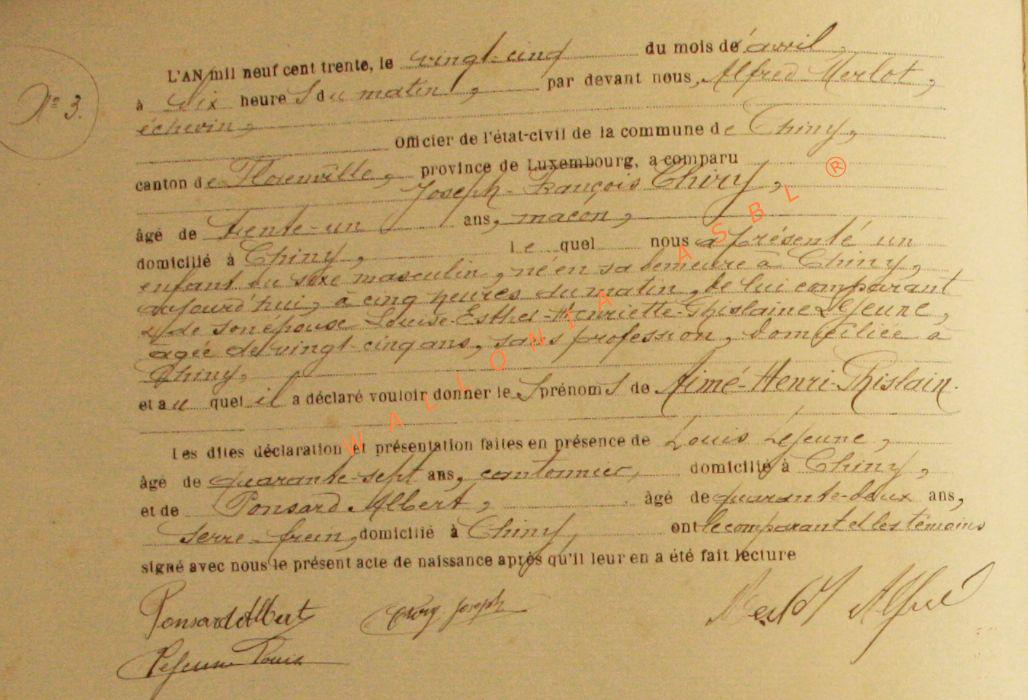 N° 3.
L'AN mil neuf cent trente, le vingt-cinq du mois de avril,
à dix heure S du matin, par devant nous, Alfred Merlot,
échevin,
Officier de l'état-civil de la commune de Chiny,
canton de Florenville, province de Luxembourg, a comparu
Joseph-François Thiry,
âgé de trente-un ans, maçon,
domicilié à Chiny, le quel nous a présenté un
enfant du sexe masculin, né en sa demeure à Chiny,
aujourd'hui, à cinq heures du matin, de lui comparant
& de son épouse Louise-Esther-Henriette-Ghislaine Lejeune,
âgée de vingt-cinq ans, sans profession, domiciliée à
Chiny,
et au quel il a déclaré vouloir donner le S prénoms de Aimé-Henri-Ghislain.
Les dites déclaration et présentation faites en présence de Louis Lejeune,
âgé de quarante-sept ans, cantonnier, domicilié à Chiny,
et de Ponsard Albert, âgé de quarante-deux ans,
serre-frein, domicilié à Chiny, ont le comparant et les témoins
signé avec nous le présent acte de naissance après qu'il leur en a été fait lecture
Ponsard Albert Thiry Joseph Merlot Alfred
Lejeune Louis
WALLONIA ASBL ®